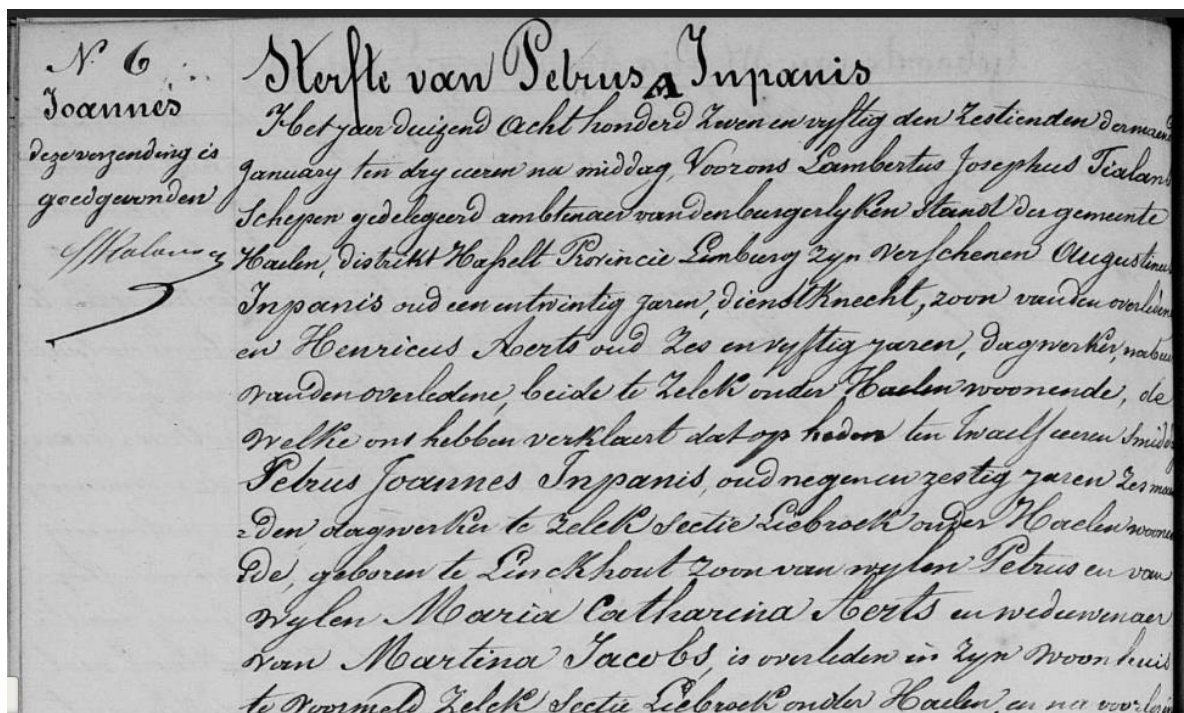 N.o 6
Joannes
deze verzending is
goedgevonden
Sterfte van Petrus A Inpanis
Het jaer duizend acht honderd zeven en vyftig den zestienden der maend
January ten dry ueren na middag, Voor ons Lambertus Josephus
Schepen gedelegeerd ambtenaer van den burgerlyken stand der gemeente
Haelen, distrikt Hasselt Provincie Limburg zyn verschenen Augustinus
Inpanis oud een en twintig jaren, dienstknecht, zoon van den overledene
en Henricus Aerts oud zes en vyftig jaren, dagwerker, nabuer
van den overledene, beide te Zelck onder Haelen woonende, de
welke ons hebben verklaert dat op heden ten twaelf ueren smiddags
Petrus Joannes Inpanis, oud negen en zestig jaren zes maen
=den dagwerker te Zelck sectie Liebroek onder Haelen woonen
=de, geboren te Linckhout zoon van wylen Petrus en van
wylen Maria Catharina Aerts en weduwenaer
van Martina Jacobs, is overleden in zyn woonhuis
te voormeld Zelck sectie Liebroek onder Haelen, en na voorlezing